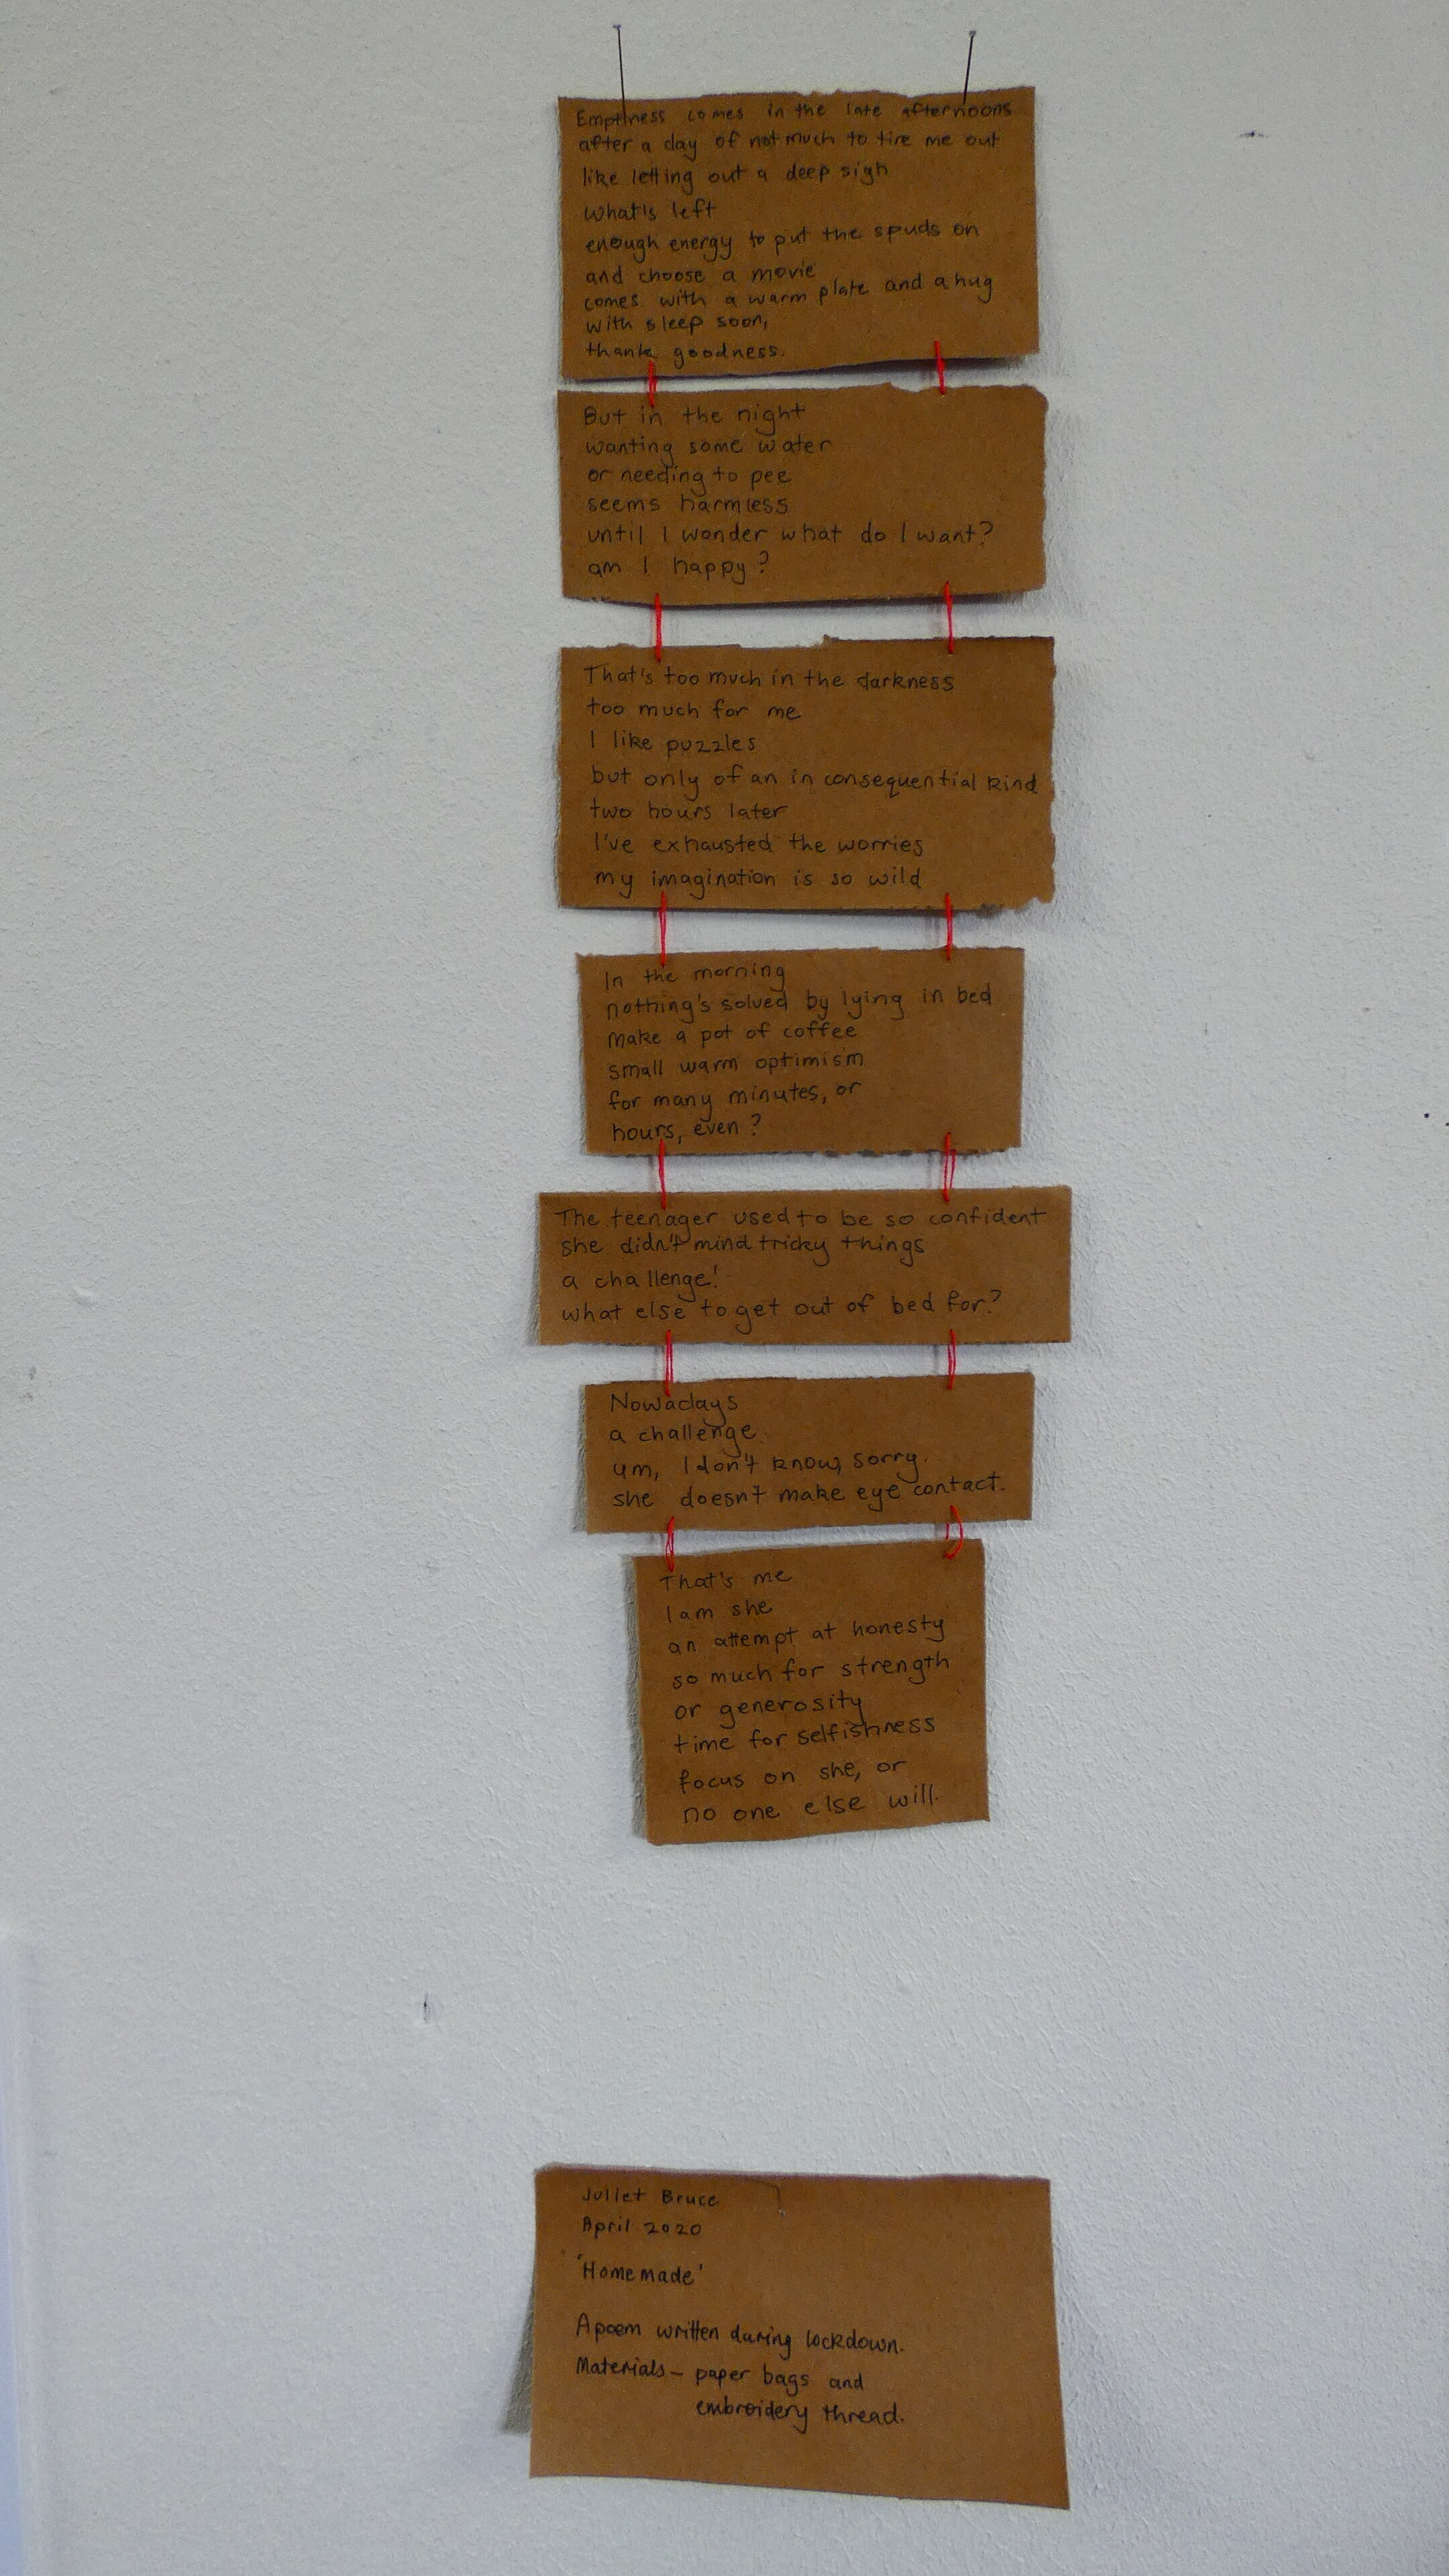 Emptiness comes in the late afternoons
after a day of not much to tire me out
like letting out a deep sigh
what's left
enough energy to put the spuds on
and choose a movie
comes with a warm plate and a hug
with sleep soon,
thank goodness.
But in the night
wanting some water
or needing to pee
seems harmless
until I wonder what do I want?
am I happy?
That's too much in the darkness
too much for me
I like puzzles
but only of an in consequential kind
two hours later
I've exhausted the worries
my imagination is so wild
In the morning
nothing's solved by lying in bed
make a pot of coffee
small warm optimism
for many minutes, or
hours, even?
The teenager used to be so confident
she didn't mind tricky things
a challenge!
what else to get out of bed for?
Nowadays
a challenge
um, I don't know, sorry.
she doesn't make eye contact.
That's me
I am she
an attempt at honesty
so much for strength
or generosity
time for selfishness
focus on she, or
no one else will.
Juliet Bruce
April 2020
'Homemade'
A poem written during lockdown.
Materials - paper bags and
embroidery thread.